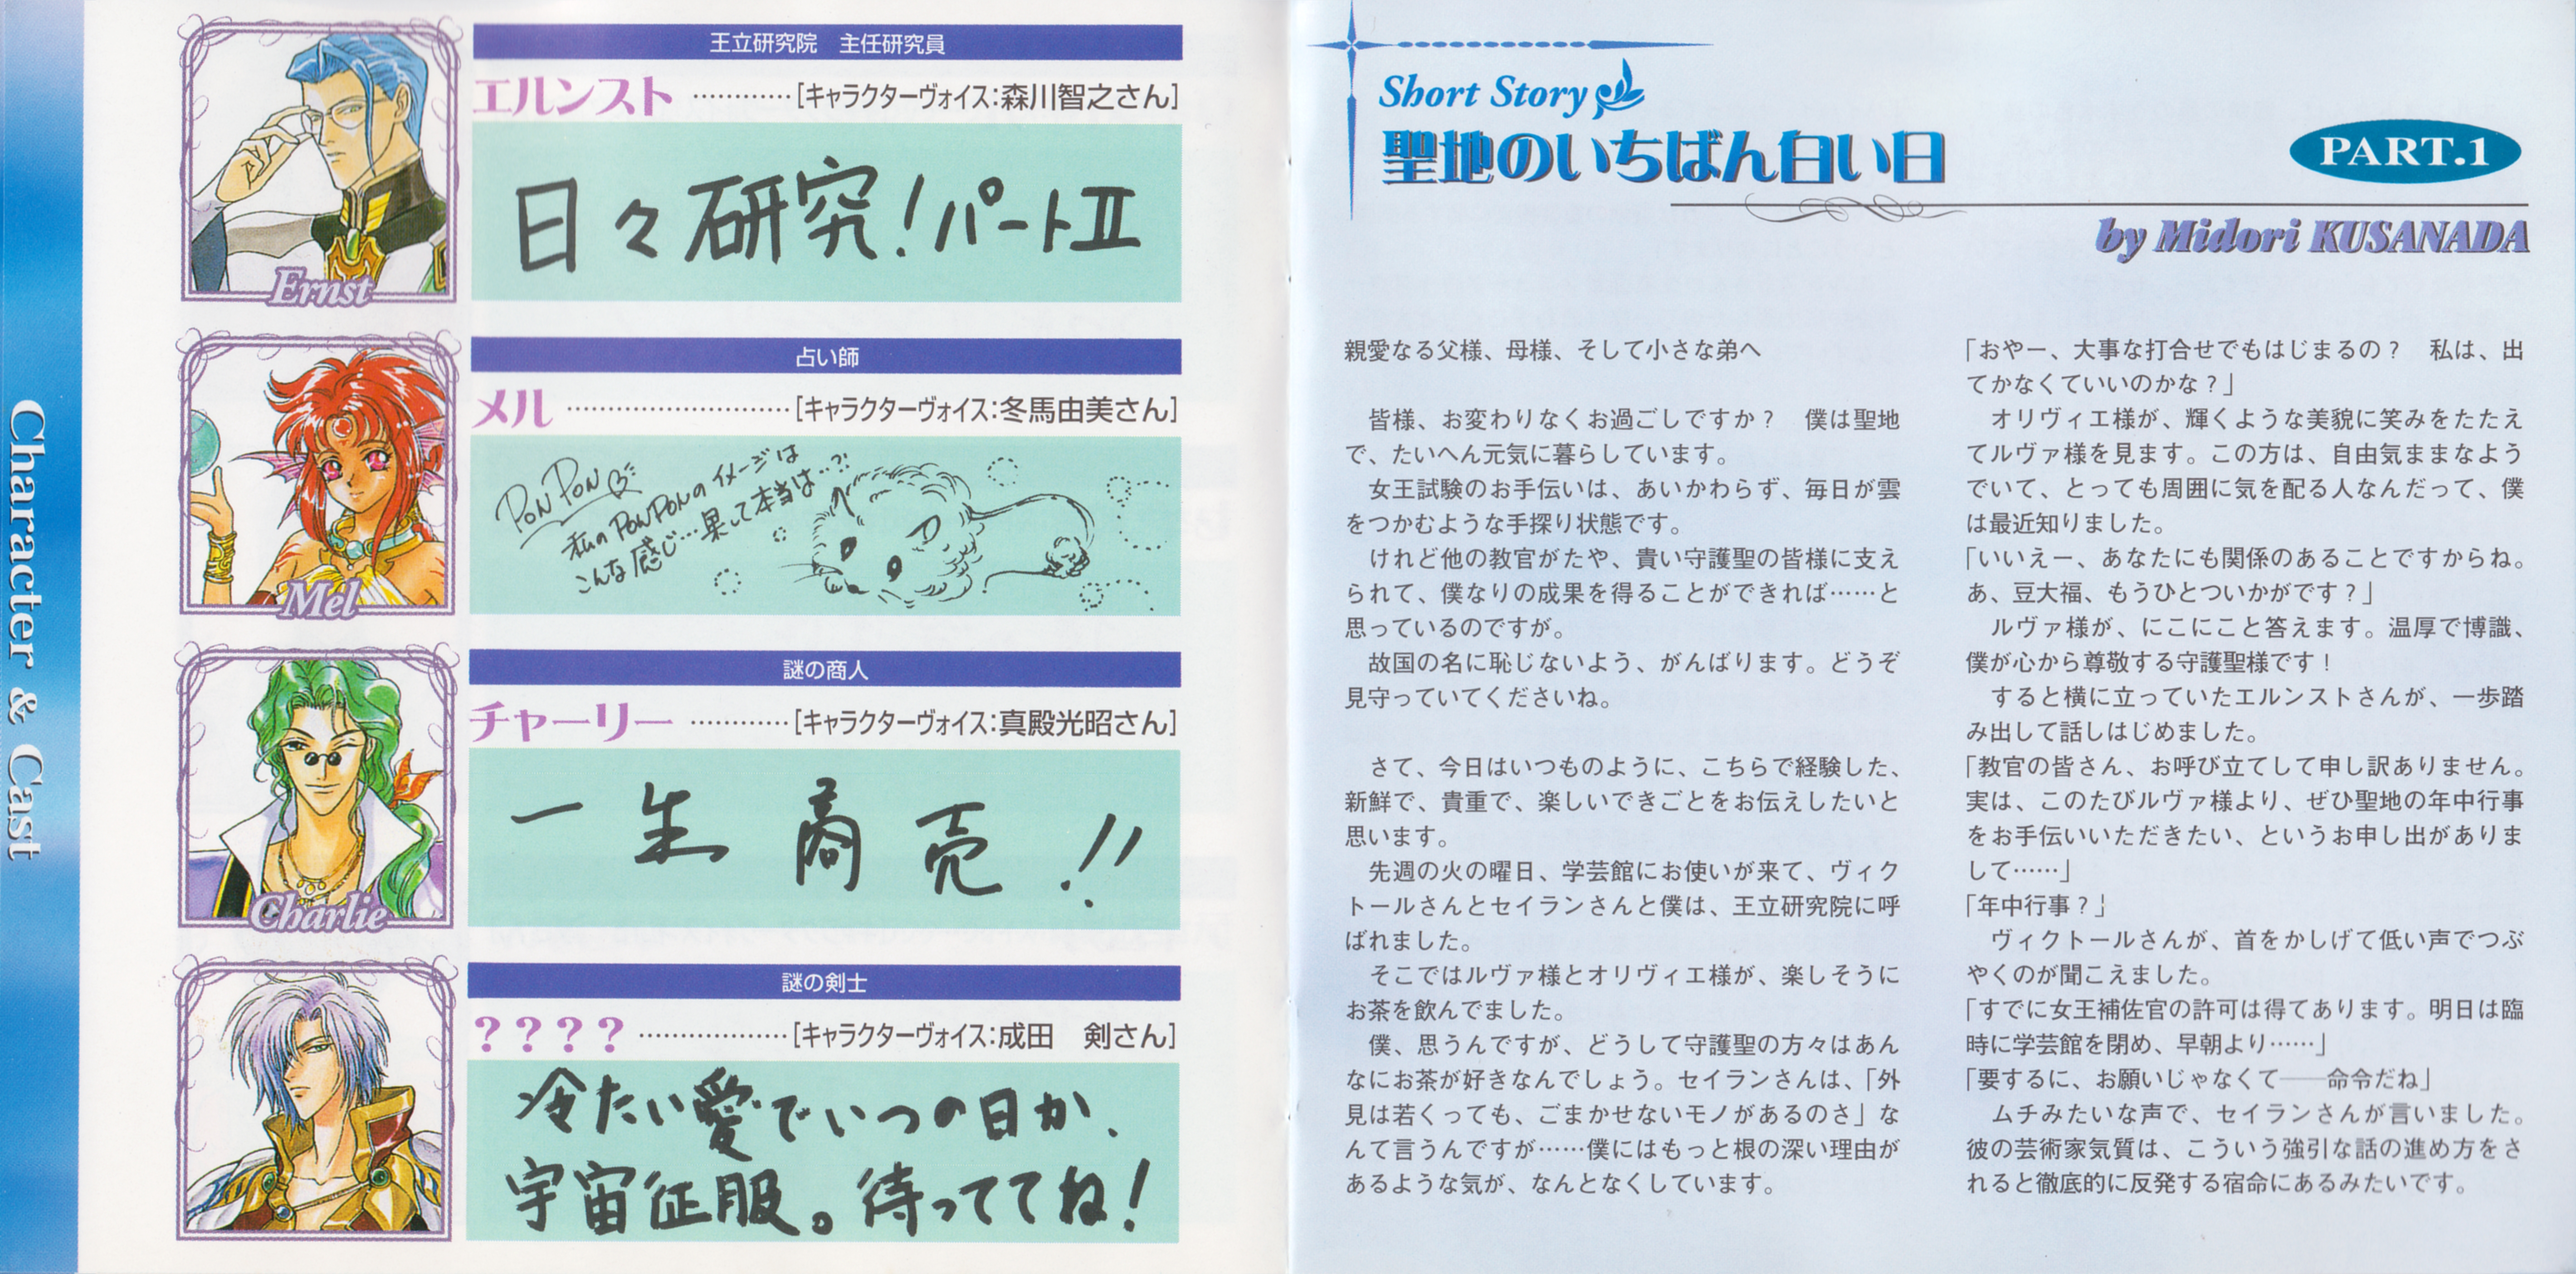 Character & Cast
王立研究院　主任研究員
エルンスト …………[キャラクターヴォイス:森川智之さん]
日々研究!パートⅡ
Ernst
占い師
メル ………………………[キャラクターヴォイス:冬馬由美さん]
PON PON
私のPONPONのイメージは
こんな感じ…果して本当は…?!
Mel
謎の商人
チャーリー …………[キャラクターヴォイス:真殿光昭さん]
一生商売!!
Charlie
謎の剣士
???? ………………[キャラクターヴォイス:成田　剣さん]
冷たい愛でいつの日か、
宇宙征服。待っててね!
Short Story
聖地のいちばん白い日
PART.1
by Midori KUSANADA
親愛なる父様、母様、そして小さな弟へ
　皆様、お変わりなくお過ごしですか?　僕は聖地
で、たいへん元気に暮らしています。
　女王試験のお手伝いは、あいかわらず、毎日が雲
をつかむような手探り状態です。
　けれど他の教官がたや、貴い守護聖の皆様に支え
られて、僕なりの成果を得ることができれば……と
思っているのですが。
　故国の名に恥じないよう、がんばります。どうぞ
見守っていてくださいね。
　さて、今日はいつものように、こちらで経験した、
新鮮で、貴重で、楽しいできごとをお伝えしたいと
思います。
　先週の火の曜日、学芸館にお使いが来て、ヴィク
トールさんとセイランさんと僕は、王立研究院に呼
ばれました。
　そこではルヴァ様とオリヴィエ様が、楽しそうに
お茶を飲んでました。
　僕、思うんですが、どうして守護聖の方々はあん
なにお茶が好きなんでしょう。セイランさんは、「外
見は若くっても、ごまかせないモノがあるのさ」な
んて言うんですが……僕にはもっと根の深い理由が
あるような気が、なんとなくしています。
「おやー、大事な打合せでもはじまるの?　私は、出
てかなくていいのかな?」
　オリヴィエ様が、輝くような美貌に笑みをたたえ
てルヴァ様を見ます。この方は、自由気ままなよう
でいて、とっても周囲に気を配る人なんだって、僕
は最近知りました。
「いいえー、あなたにも関係のあることですからね。
あ、豆大福、もうひとついかがです?」
　ルヴァ様が、にこにこと答えます。温厚で博識、
僕が心から尊敬する守護聖様です!
　すると横に立っていたエルンストさんが、一歩踏
み出して話しはじめました。
「教官の皆さん、お呼び立てして申し訳ありません。
実は、このたびルヴァ様より、ぜひ聖地の年中行事
をお手伝いいただきたい、というお申し出がありま
して……」
「年中行事?」
　ヴィクトールさんが、首をかしげて低い声でつぶ
やくのが聞こえました。
「すでに女王補佐官の許可は得てあります。明日は臨
時に学芸館を閉め、早朝より……」
「要するに、お願いじゃなくて――命令だね」
　ムチみたいな声で、セイランさんが言いました。
彼の芸術家気質は、こういう強引な話の進め方をさ
れると徹底的に反発する宿命にあるみたいです。